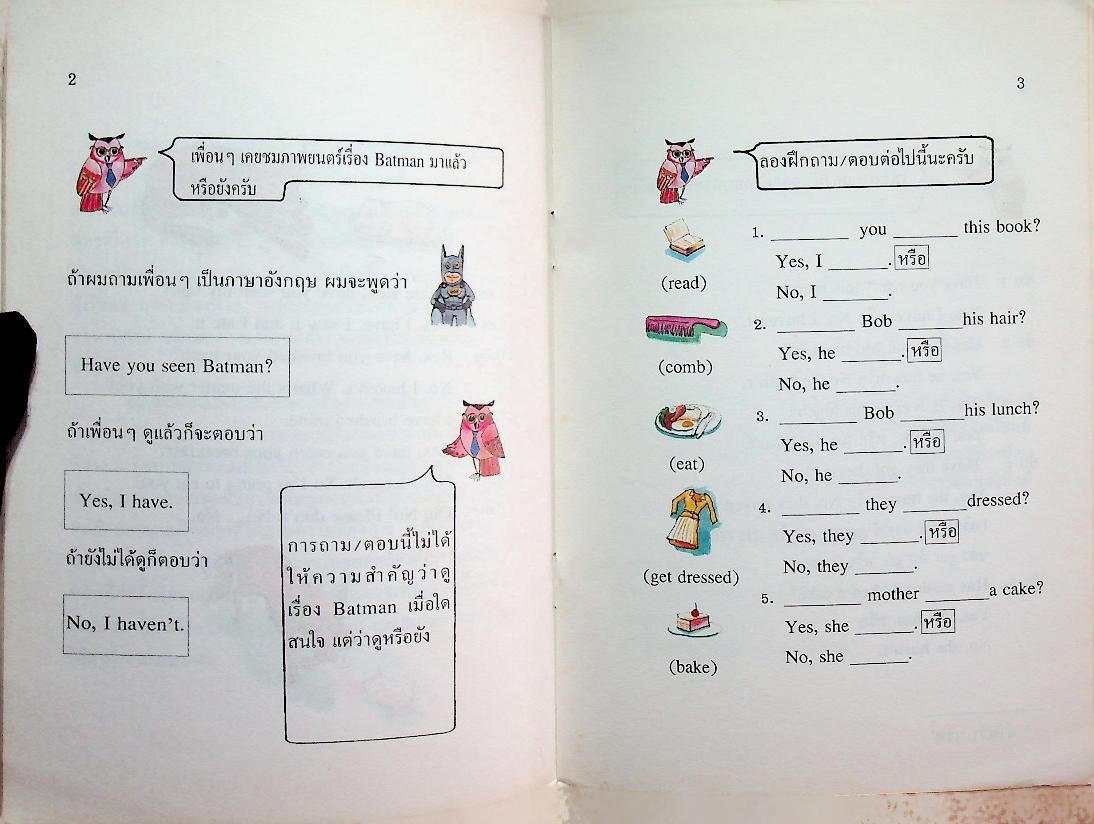 2
เพื่อนๆ เคยชมภาพยนตร์เรื่อง Batman มาแล้ว
หรือยังครับ
ถ้าผมถามเพื่อนๆ เป็นภาษาอังกฤษ ผมจะพูดว่า
Have you seen Batman?
ถ้าเพื่อนๆ ดูแล้วก็จะตอบว่า
Yes, I have.
ถ้ายังไม่ได้ดูก็ตอบว่า
No, I haven't.
การถาม/ตอบนี้ไม่ได้
ให้ความสำคัญว่าดู
เรื่อง Batman เมื่อใด
สนใจ แต่ว่าดูหรือยัง
3
ลองฝึกถาม/ตอบต่อไปนี้นะครับ
(read)
1. ________ you _______ this book?
Yes, I ______. หรือ
No, I _______.
(comb)
2. ________ Bob _______ his hair?
Yes, he ______. หรือ
No, he ______.
(eat)
3. ________ Bob ______ his lunch?
Yes, he ______. หรือ
No, he ______.
(get dressed)
4. ________ they ______ dressed?
Yes, they ______. หรือ
No, they ______.
(bake)
5. ________ mother _______ a cake?
Yes, she ______. หรือ
No, she ______.